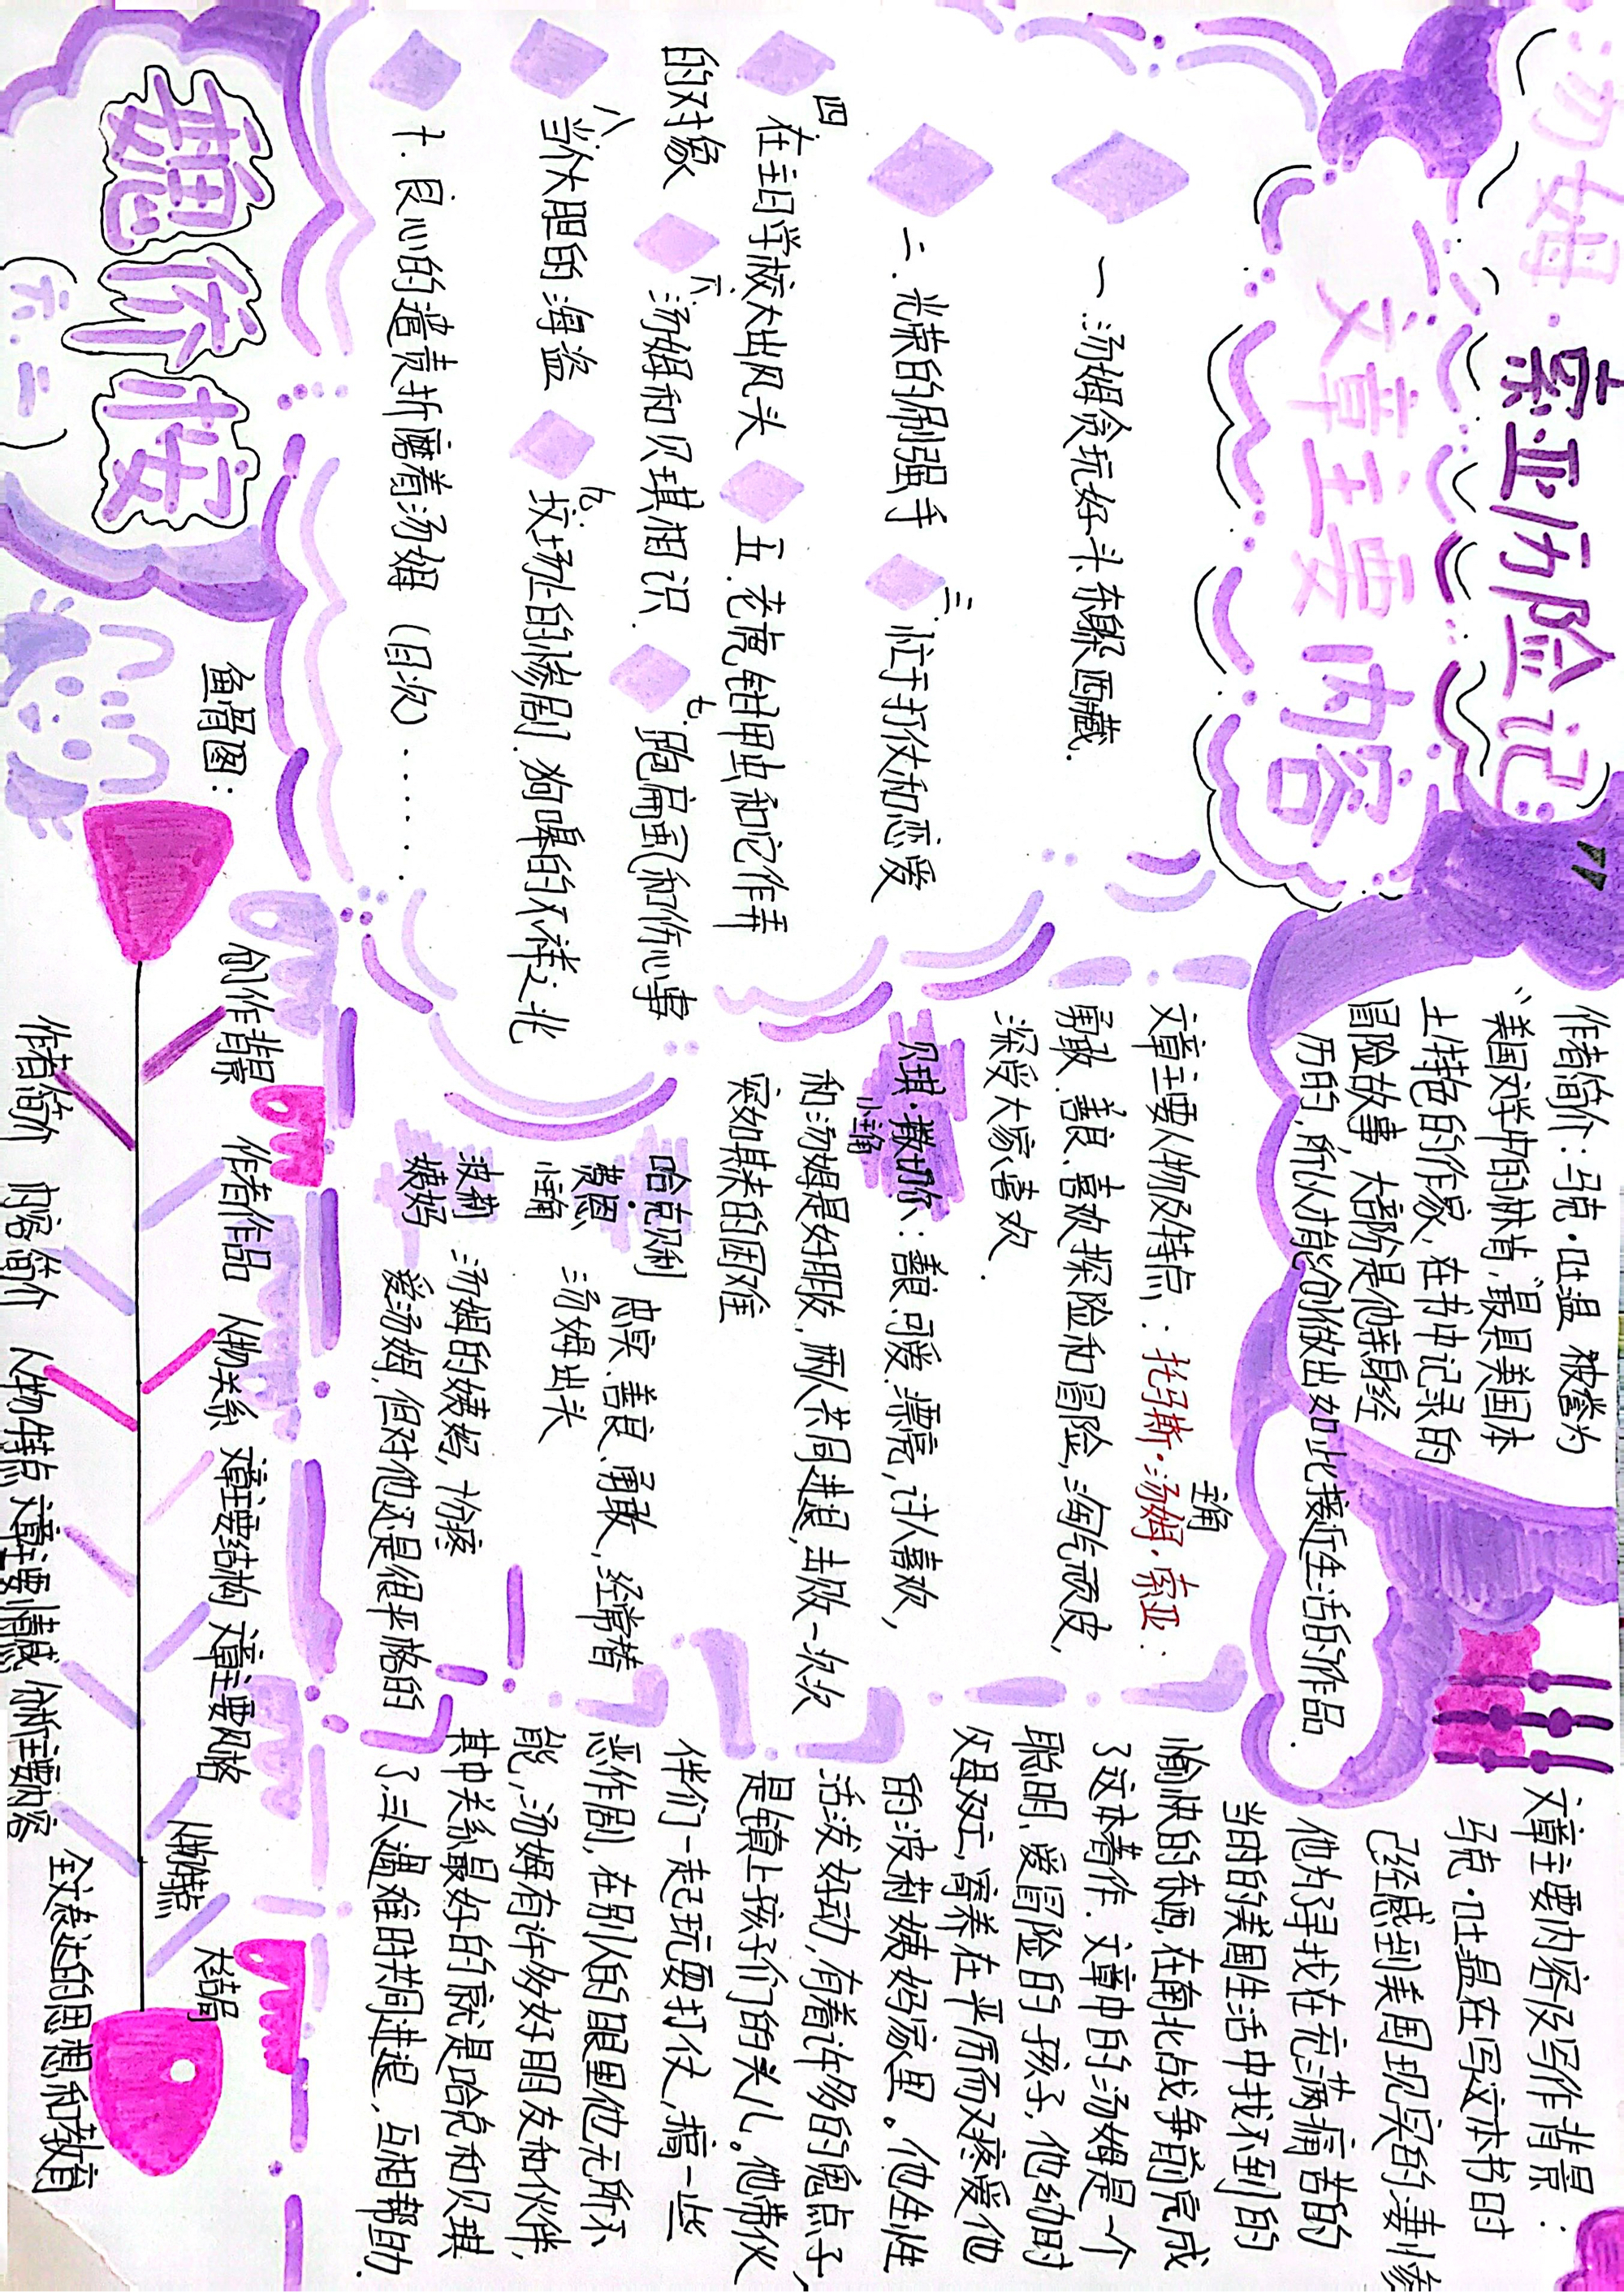 汤姆·索亚历险记
文章主要内容
一.汤姆贪玩好斗、东躲西藏.
二.光荣的刷强手
三.忙于打仗和恋爱
四.在主日学校大出风头
五.老虎钳甲虫和它作弄
的对象
六.汤姆和贝琪相识.
七.跑扁圆和伤心事
八.当个大胆的海盗
九.坟场上的惨剧.狗嗥的不祥之兆
十.良心的谴责折磨着汤姆(目次)......
(六.二)
作者简介:马克·吐温 被誉为
“美国文学中的林肯”,最具美国本
土特色的作家,在书中记录的
冒险故事,大部份是他亲身经
历的,所以才能创做出如此接近生活的作品.
主角
文章主要人物及特点:托马斯·汤姆·索亚:
勇敢、善良、喜欢探险和冒险,淘气顽皮,
深受大家喜欢.
贝琪·撒切尔:善良、可爱、漂亮,讨人喜欢,
小主角
和汤姆是好朋友,两人共同进退,击败一次次
突如其来的困难
哈克贝利·费恩
小主角
忠实、善良、勇敢,经常替
汤姆出头
波莉姨妈
汤姆的姨妈,十份疼
爱汤姆,但对他还是很严格的
文章主要内容及写作背景:
马克·吐温在写这本书时
已经感到美国现实的凄惨
他为了寻找在充满痛苦的
当时的美国生活中找不到的
愉快的东西,在南北战争前完成
了这本著作.文章中的汤姆是一个
聪明、爱冒险的孩子,他幼时
父母双亡,寄养在严厉而又疼爱他
的波莉姨妈家里。他生性
活泼好动,有着许多的鬼点子,
是镇上孩子们的头儿。他带伙
伴们一起玩耍打仗,搞一些
恶作剧,在别人的眼里他无所不
能,汤姆有许多好朋友和伙伴,
其中关系最好的就是哈克和贝琪
了,三人遇难时共同进退,互相帮助.
鱼骨图:
创作背景 作者作品 人物关系 文章主要结构 文章主要风格 人物特点 大结局
作者简介 内容简介 人物特点 文章主要情感 创作主要内容 全文表达的思想和教育